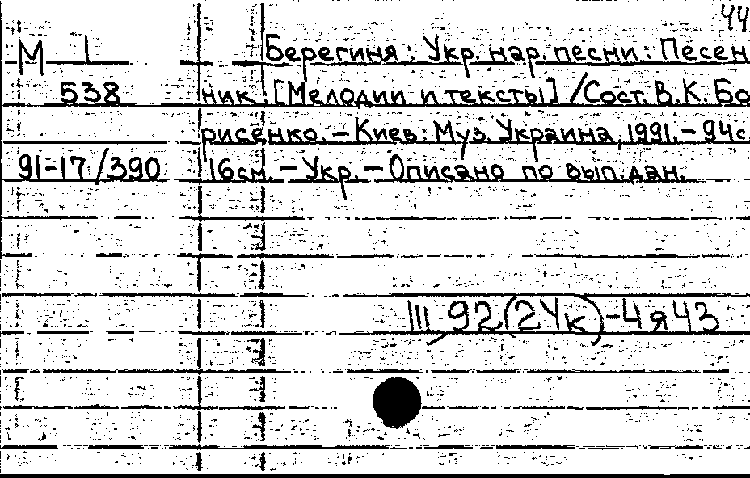 44
М I Берегиня: Укр. нар. песни: Песен
538 ник. [Мелодии и тексты] / Сост. В.К. Бо
рисенко. – Киев: Муз. Украина, 1991. – 94с.
91-17/390 16см. – Укр. – Описано по вып. дан.
III 92(2Ук)-4я43